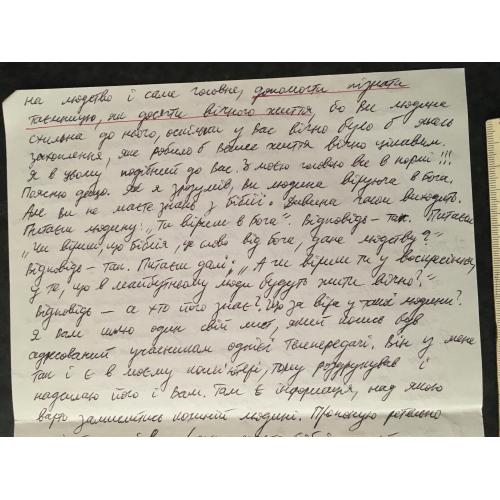 на людство і саме головне, допомогти пізнати
таємницю, як досягти вічного життя, бо Ви людина
схильна до нього, оскільки у Вас вічно було б якесь
захоплення, яке робило б Ваше життя вічно цікавим.
Я в цьому подібний до Вас. З моєю головою все в нормі!!!
Поясню дещо. Як я зрозумів, Ви людина віруюча в Бога.
Але Ви не маєте знань з Біблії. Дивина часом виходить.
Питаєш людину: „Ти віриш в Бога". Відповідь – так. Питаєш
„Чи віриш, що Біблія, це слово від Бога, дане людству?"
Відповідь – так. Питаєш далі: „А чи віриш ти у воскресіння,
у те, що в майбутньому люди будуть жити вічно?"
Відповідь – а хто його знає? Що за віра у такої людини?
Я Вам шлю один свій лист, який колись був
адресований учасникам однієї телепередачі. Він у мене
так і є в моєму комп'ютері, тому роздрукував і
надсилаю його і Вам. Там є інформація, над якою
варто замислитись кожній людині. Пропоную ретельно